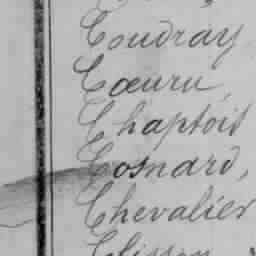 Coudray
Cœuru,
Chaptois
Cosnard,
Chevalier
Clisson